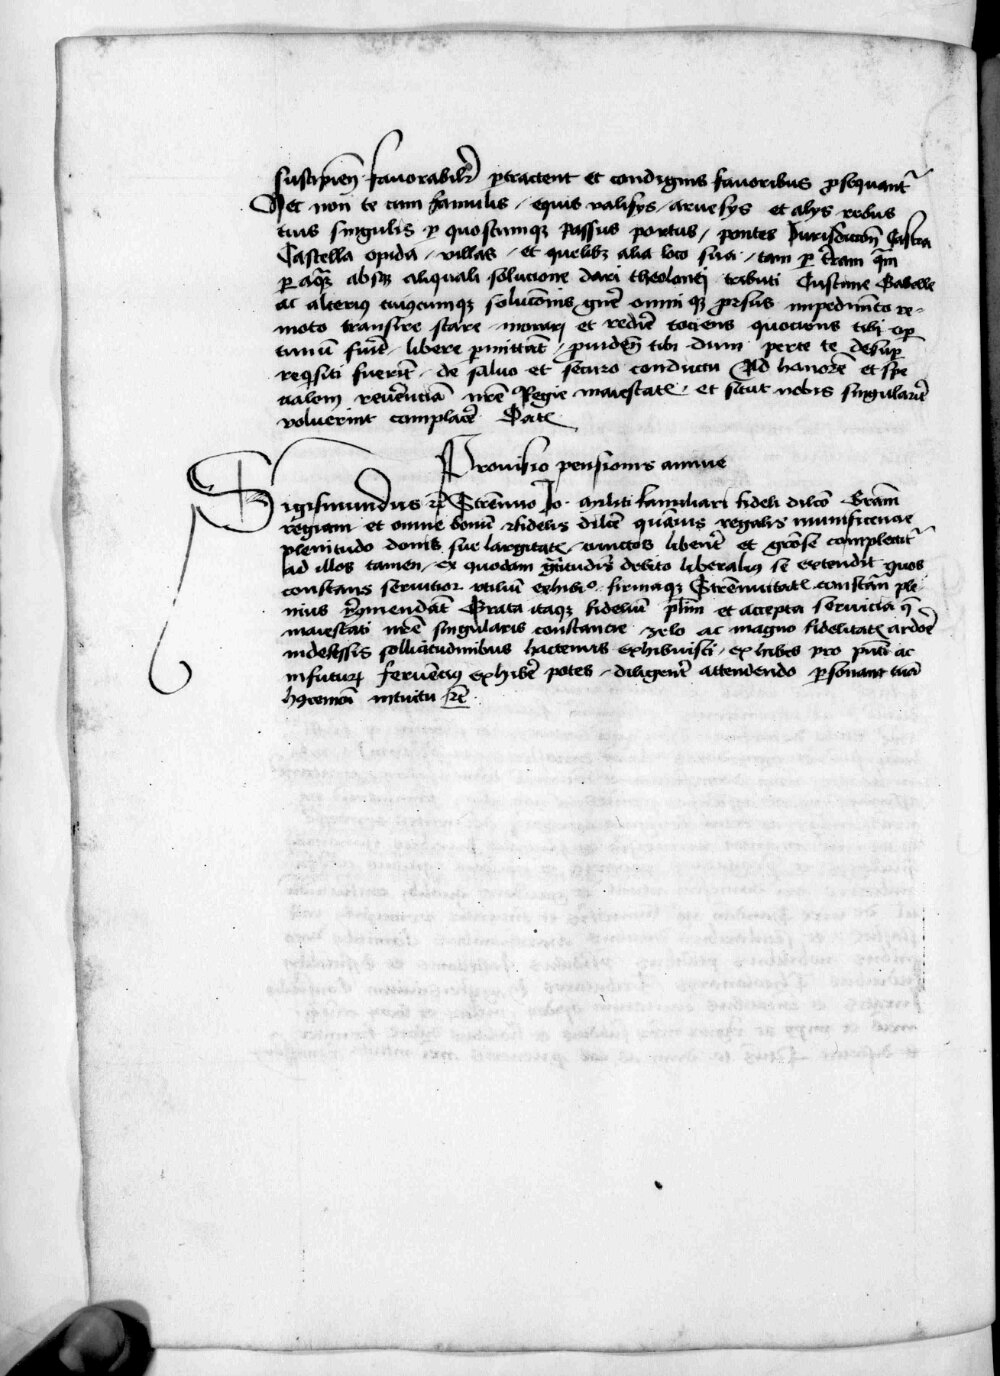 suscipien̄ fauorabilit̄ ꝑtractent et condignis fauoribus ꝓsequant᷑
Necnon te cum famulis / equis valisys / arnesys et alys rebus
tuis singulis ꝑ quoscumqꝫ passus portus / pontes Jurisdiccōn Castra
Castella opida / villas / et quelibꝫ alia loca sua / tam ꝑ terram qm̄
ꝑ aquā absqꝫ aliquali solucione dari theolonei tributi Custume Gabelle
ac alterius cuiuscumqꝫ solucōnis gn̄re omni qꝫ ꝓrsus impedimēto re-
moto transire stare / morari et redire tociens quociens tibi opor
tunū fuīt / libere ꝑmittāt / ꝓuiden̄ tibi dum perte te desuꝑ
reqisiti fuerīt / de saluo et securo conductu Ad honorē et spe
cialem reuerenciā nr̄e Regie maiestat / et sicut nobis singulariter
voluerint complacē Dat
Prouisio pensionis annue
Sigismundus rc̄ Strēnuo Jo militi familiari fideli dilcō Gram̄
regiam et omne bonū fidelis dilcē quāuis regalis munificencie
plenitudo donis sue largitat cunctos libent̄ et grōse complectit᷑
ad illos tamen / ex quodam gratitudīs debito liberalius se extendit quos
constans seruitior vtiliū exhibicō firmaqꝫ Strēnuitat constān ple
nius recōmendāt Grata itaqꝫ fideliū plīm et accepta seruicia q̄
maiestati nr̄e singularis constancie zelo ac magno fidelitat ardore
indefessis sollicitudinibus hactenus exhibuisti / exhibes pro pn̄ti ac
infuturū feruēcius exhibē potes / diligent̄ attendendo ꝑsonam tuā
intuitu rc̄